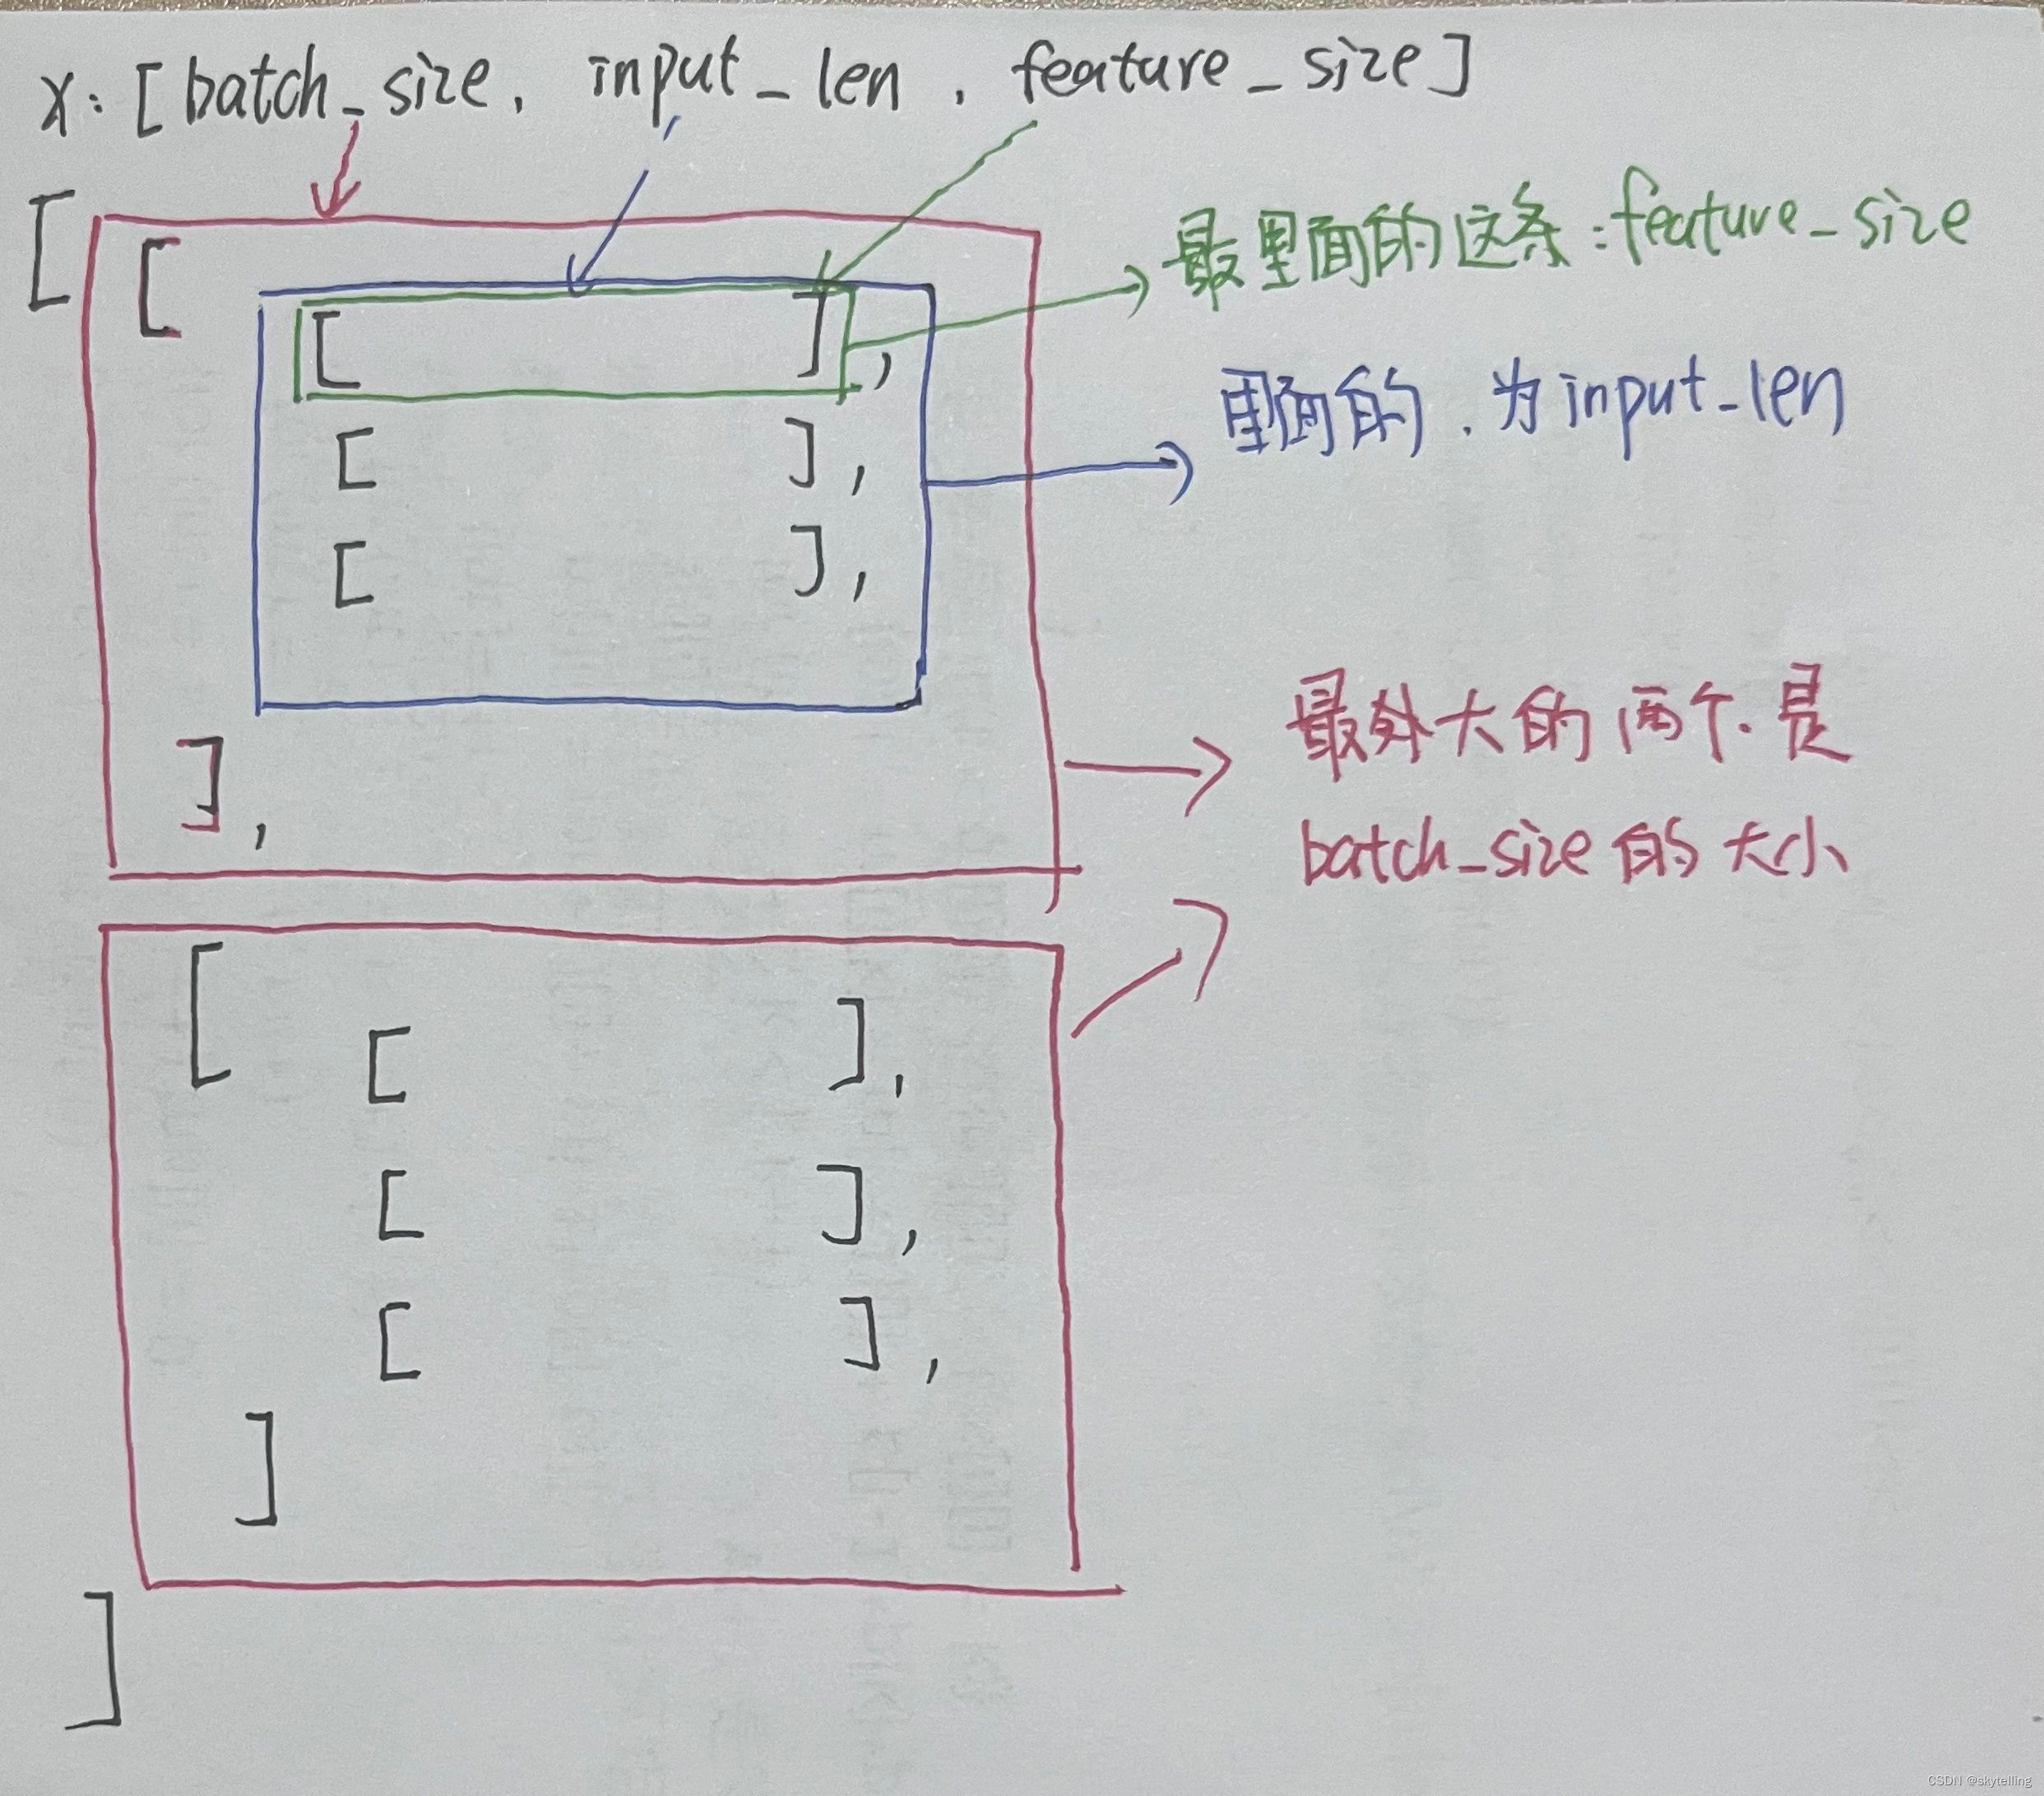 x: [batch_size, input_len, feature_size]
[
[
[ ],
最里面的这条:feature_size
里面的,为input_len
[ ],
[ ],
],
最外大的两个是
batch_size的大小
[
[ ],
[ ],
[ ],
]
]
CSDN @skytelling